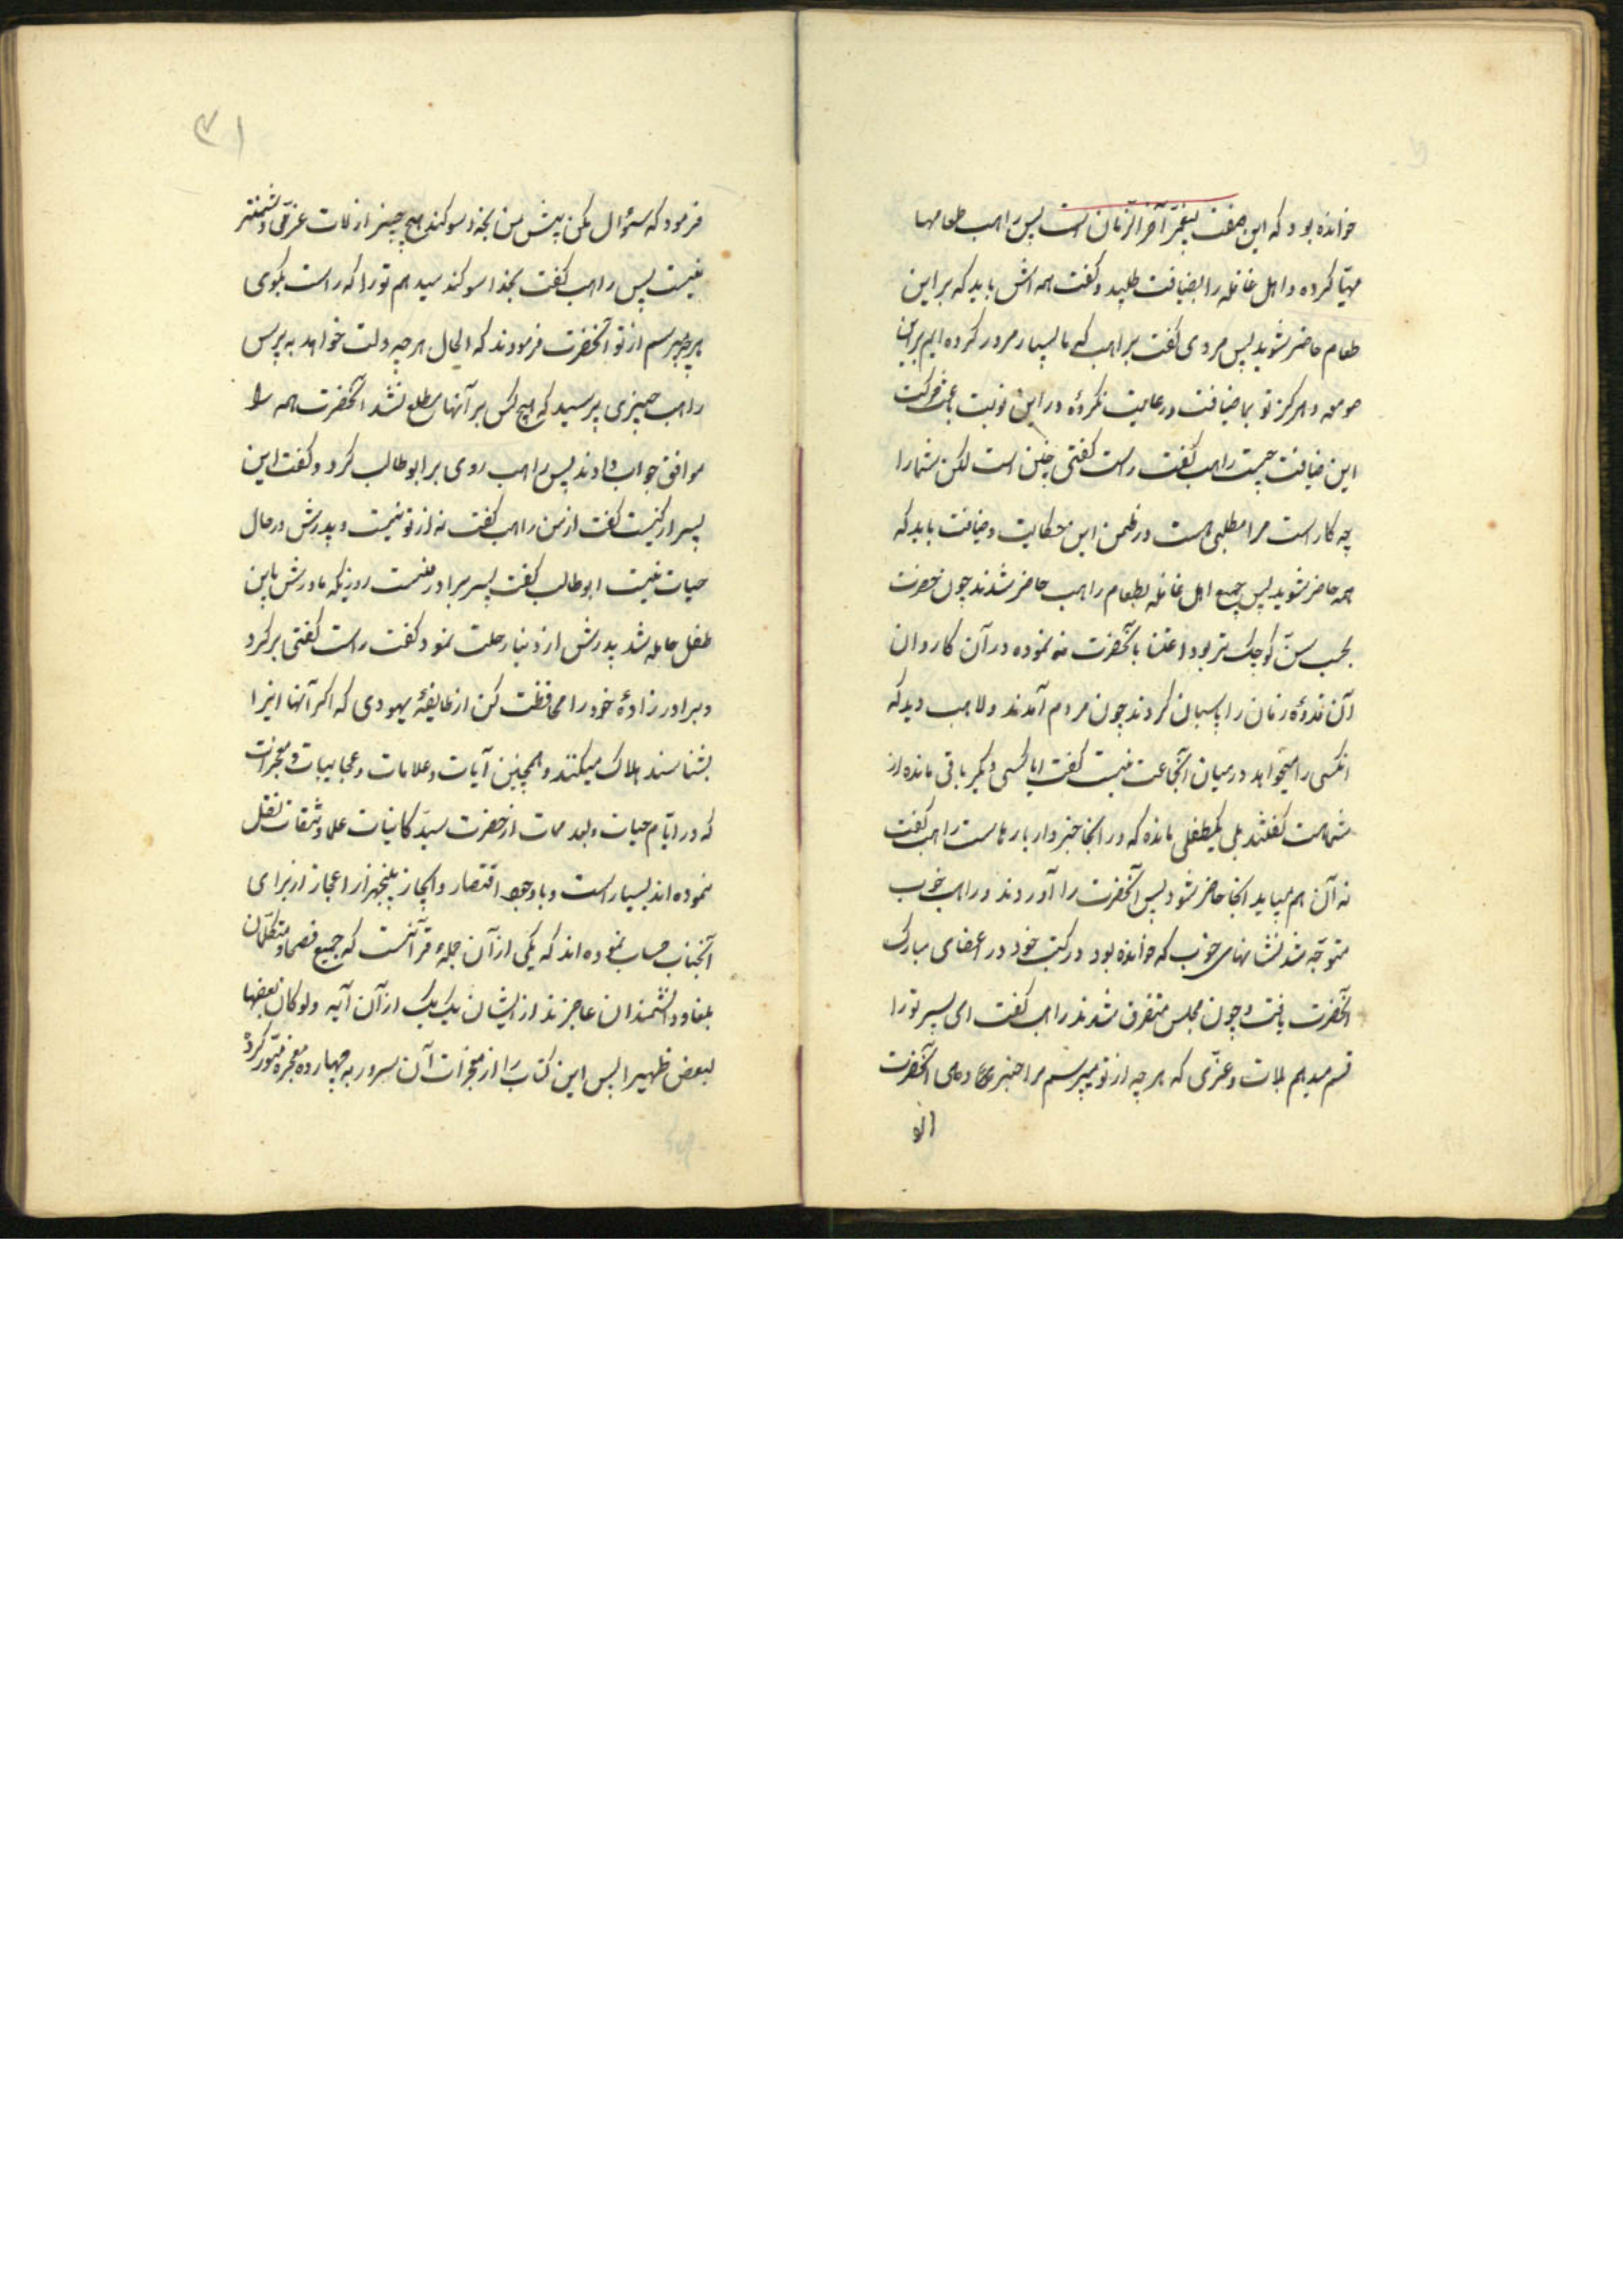 خوانده بود که این صفت پیغمبر آخر الزمان است پس راهب طعامها
مهیّا کرده و اهل غافله را بضیافت طلبید و گفت همه اش باید که بر این
طعام حاضر شوید پس مردی گفت براهب که ما بسیار مرور کرده ایم براین
صومعه و هرگز تو بما ضیافت و رعایت نکردهٔ در این نوبت باعث
این ضیافت چیست راهب گفت راست گفتی چنین است لکن شما را
چه کار است مرا مطلبی هست در ضمن این حکایت و ضیافت باید که
همه حاضر شوید پس جمیع اهل غافله بطعام راهب حاضر شدند چون حضرت
بحسب سنّ کوچک تر بود اعتنا بآنحضرت نه نموده در آن کاروان
آن قدوهٔ زمان را پاسبان کردند چون مردم آمدند و راهب دید که
انکسی را میخواهد در میان آنجماعت نیست گفت ایا کسی دیگر باقی مانده از
شماهست گفتند بلی یکطفلی مانده که در انجا خبردار بارهاست راهب گفت
نه آن هم میباید اینجا حاضر شود پس آنحضرت را آوردند و راهب خوب
متوجّه شد نشانهای خوب که خوانده بود در کتب خود در اعضای مبارک
آنحضرت یافت و چون مجلس متفرق شدند راهب گفت ای پسر تو را
قسم میدهم بلات و عزّی که هر چه از تو میپرسم مرا خبر دهی آنحضرت
۳۱
فرمود که سؤال مکن پیش من بخدا سوکند هیچ چیز از لات عزّی دشمنتر
نیست پس راهب گفت بخدا سوکند میدهم تو را که راست بگوی
هر چه بپرسم از تو آنحضرت فرمودند که الحال هر چه دلت خواهد به پرس
راهب چیزی پرسید که هیچ کس بر آنها مطلع نشد آنحضرت همه را
موافق جواب دادند پس راهب روی بر ابو طالب کرد و گفت این
پسر از کیست گفت از من راهب گفت نه از تو نیست و پدرش در حال
حیات نیست ابوطالب گفت پسر برادر منست روزیکه مادرش باین
طفل حامله شد پدرش از دنیا رحلت نمود گفت راست گفتی برگرد
و برادر زادهٔ خود را محافظت کن از طایفهٔ یهودی که اکر آنها اینرا
بشناسند هلاک میکنند و همچنین آیات و علامات و عجایبات و معجزات
که در ایّام حیات و بعد ممات از حضرت سیّد کاینات علما و ثقات نقل
نموده اند بسیار است و با وجود اقتصار و ایجاز پنجهزار اعجاز از برای
آنجناب حساب نموده اند که یکی از آن جمله قرآنست که جمیع فصحا و متکلّمان
بلغا و دانشمندان عاجزند از ایشان یک یک از آن آیه ولو کان بعضها
لبعض ظهیرا پس این کتاب را از معجزات آن سرور به چهارده معجزه